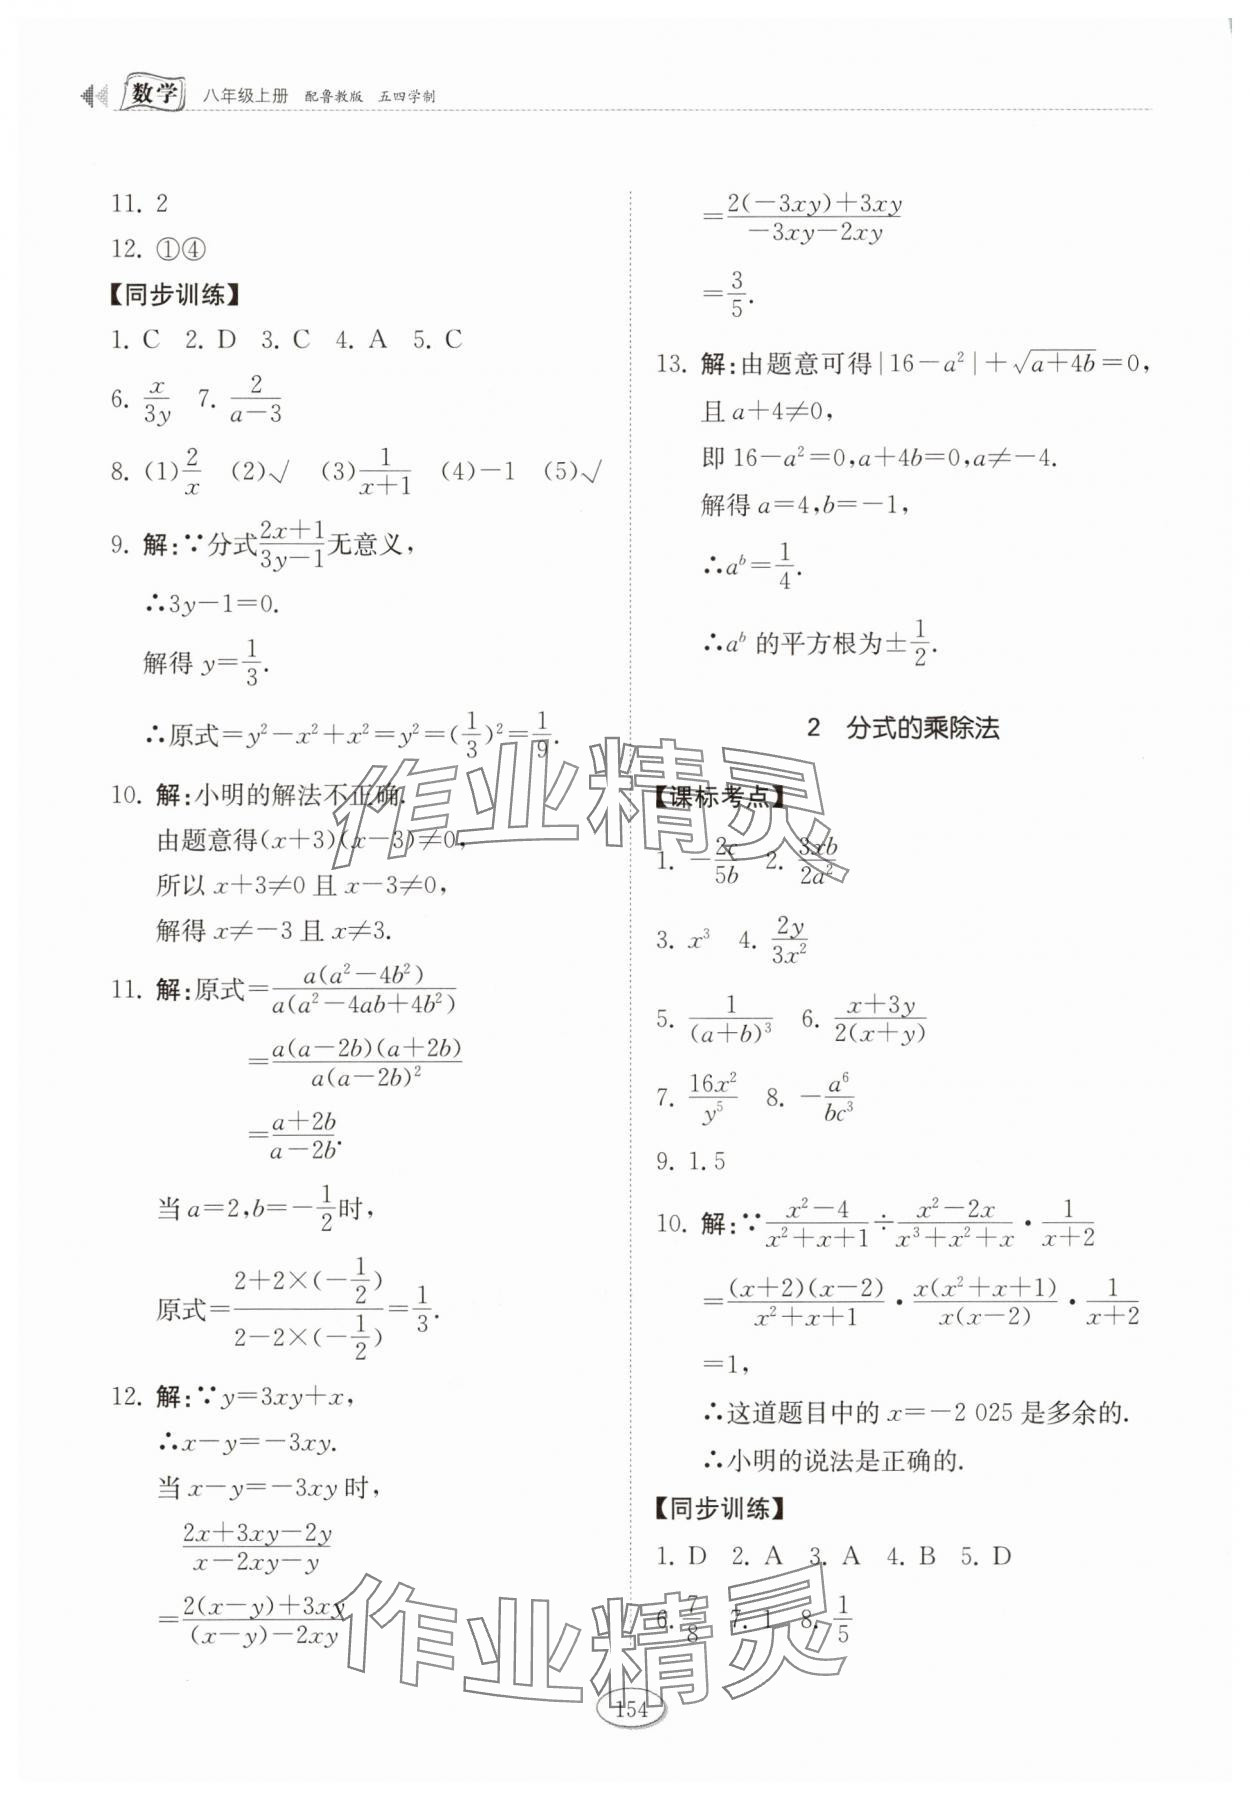 数学 八年级上册 配鲁教版 五四学制
11. 2
12. ①④
【同步训练】
1. C 2. D 3. C 4. A 5. C
6. x/(3y) 7. 2/(a-3)
8. (1) 2/x (2)√ (3) 1/(x+1) (4)-1 (5)√
9. 解:∵分式(2x+1)/(3y-1)无意义,
∴3y-1=0.
解得 y=1/3.
∴原式=y²-x²+x²=y²=(1/3)²=1/9.
10. 解:小明的解法不正确.
由题意得(x+3)(x-3)≠0,
所以 x+3≠0 且 x-3≠0,
解得 x≠-3 且 x≠3.
11. 解:原式=a(a²-4b²)/a(a²-4ab+4b²)
=a(a-2b)(a+2b)/a(a-2b)²
=(a+2b)/(a-2b).
当 a=2,b=-1/2时,
原式=(2+2×(-1/2))/(2-2×(-1/2))=1/3.
12. 解:∵y=3xy+x,
∴x-y=-3xy.
当 x-y=-3xy 时,
(2x+3xy-2y)/(x-2xy-y)
=(2(x-y)+3xy)/((x-y)-2xy)
=(2(-3xy)+3xy)/(-3xy-2xy)
=3/5.
13. 解:由题意可得|16-a²|+√(a+4b)=0,
且 a+4≠0,
即 16-a²=0,a+4b=0,a≠-4.
解得 a=4,b=-1,
∴aᵇ=1/4.
∴aᵇ 的平方根为±1/2.
2 分式的乘除法
【课标考点】
1. -2c/(5b) 2. 3xb/(2a²)
3. x³ 4. 2y/(3x²)
5. 1/(a+b)³ 6. (x+3y)/2(x+y)
7. 16x²/y⁵ 8. -a⁶/(bc³)
9. 1.5
10. 解:∵(x²-4)/(x²+x+1)÷(x²-2x)/(x³+x²+x)·1/(x+2)
=(x+2)(x-2)/(x²+x+1)·x(x²+x+1)/x(x-2)·1/(x+2)
=1,
∴这道题目中的 x=-2 025 是多余的.
∴小明的说法是正确的.
【同步训练】
1. D 2. A 3. A 4. B 5. D
6. 7/8 7. 1 8. 1/5
作业精灵
作业精灵
154